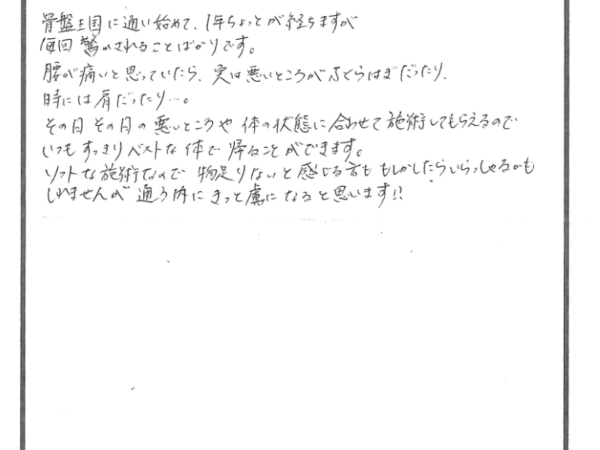 骨盤王国に通い始めて、1年ちょっとが経ちますが
毎回驚かされることばかりです。
腰が痛いと思っていたら、実は悪いところがふくらはぎだったり、
時には肩だったり…。
その日その日の悪いところや体の状態に合わせて施術してもらえるので
いつもすっきりベストな体で帰ることができます。
ソフトな施術なので物足りないと感じる方ももしかしたらいらっしゃるかも
しれませんが通う内にきっと虜になると思います!!